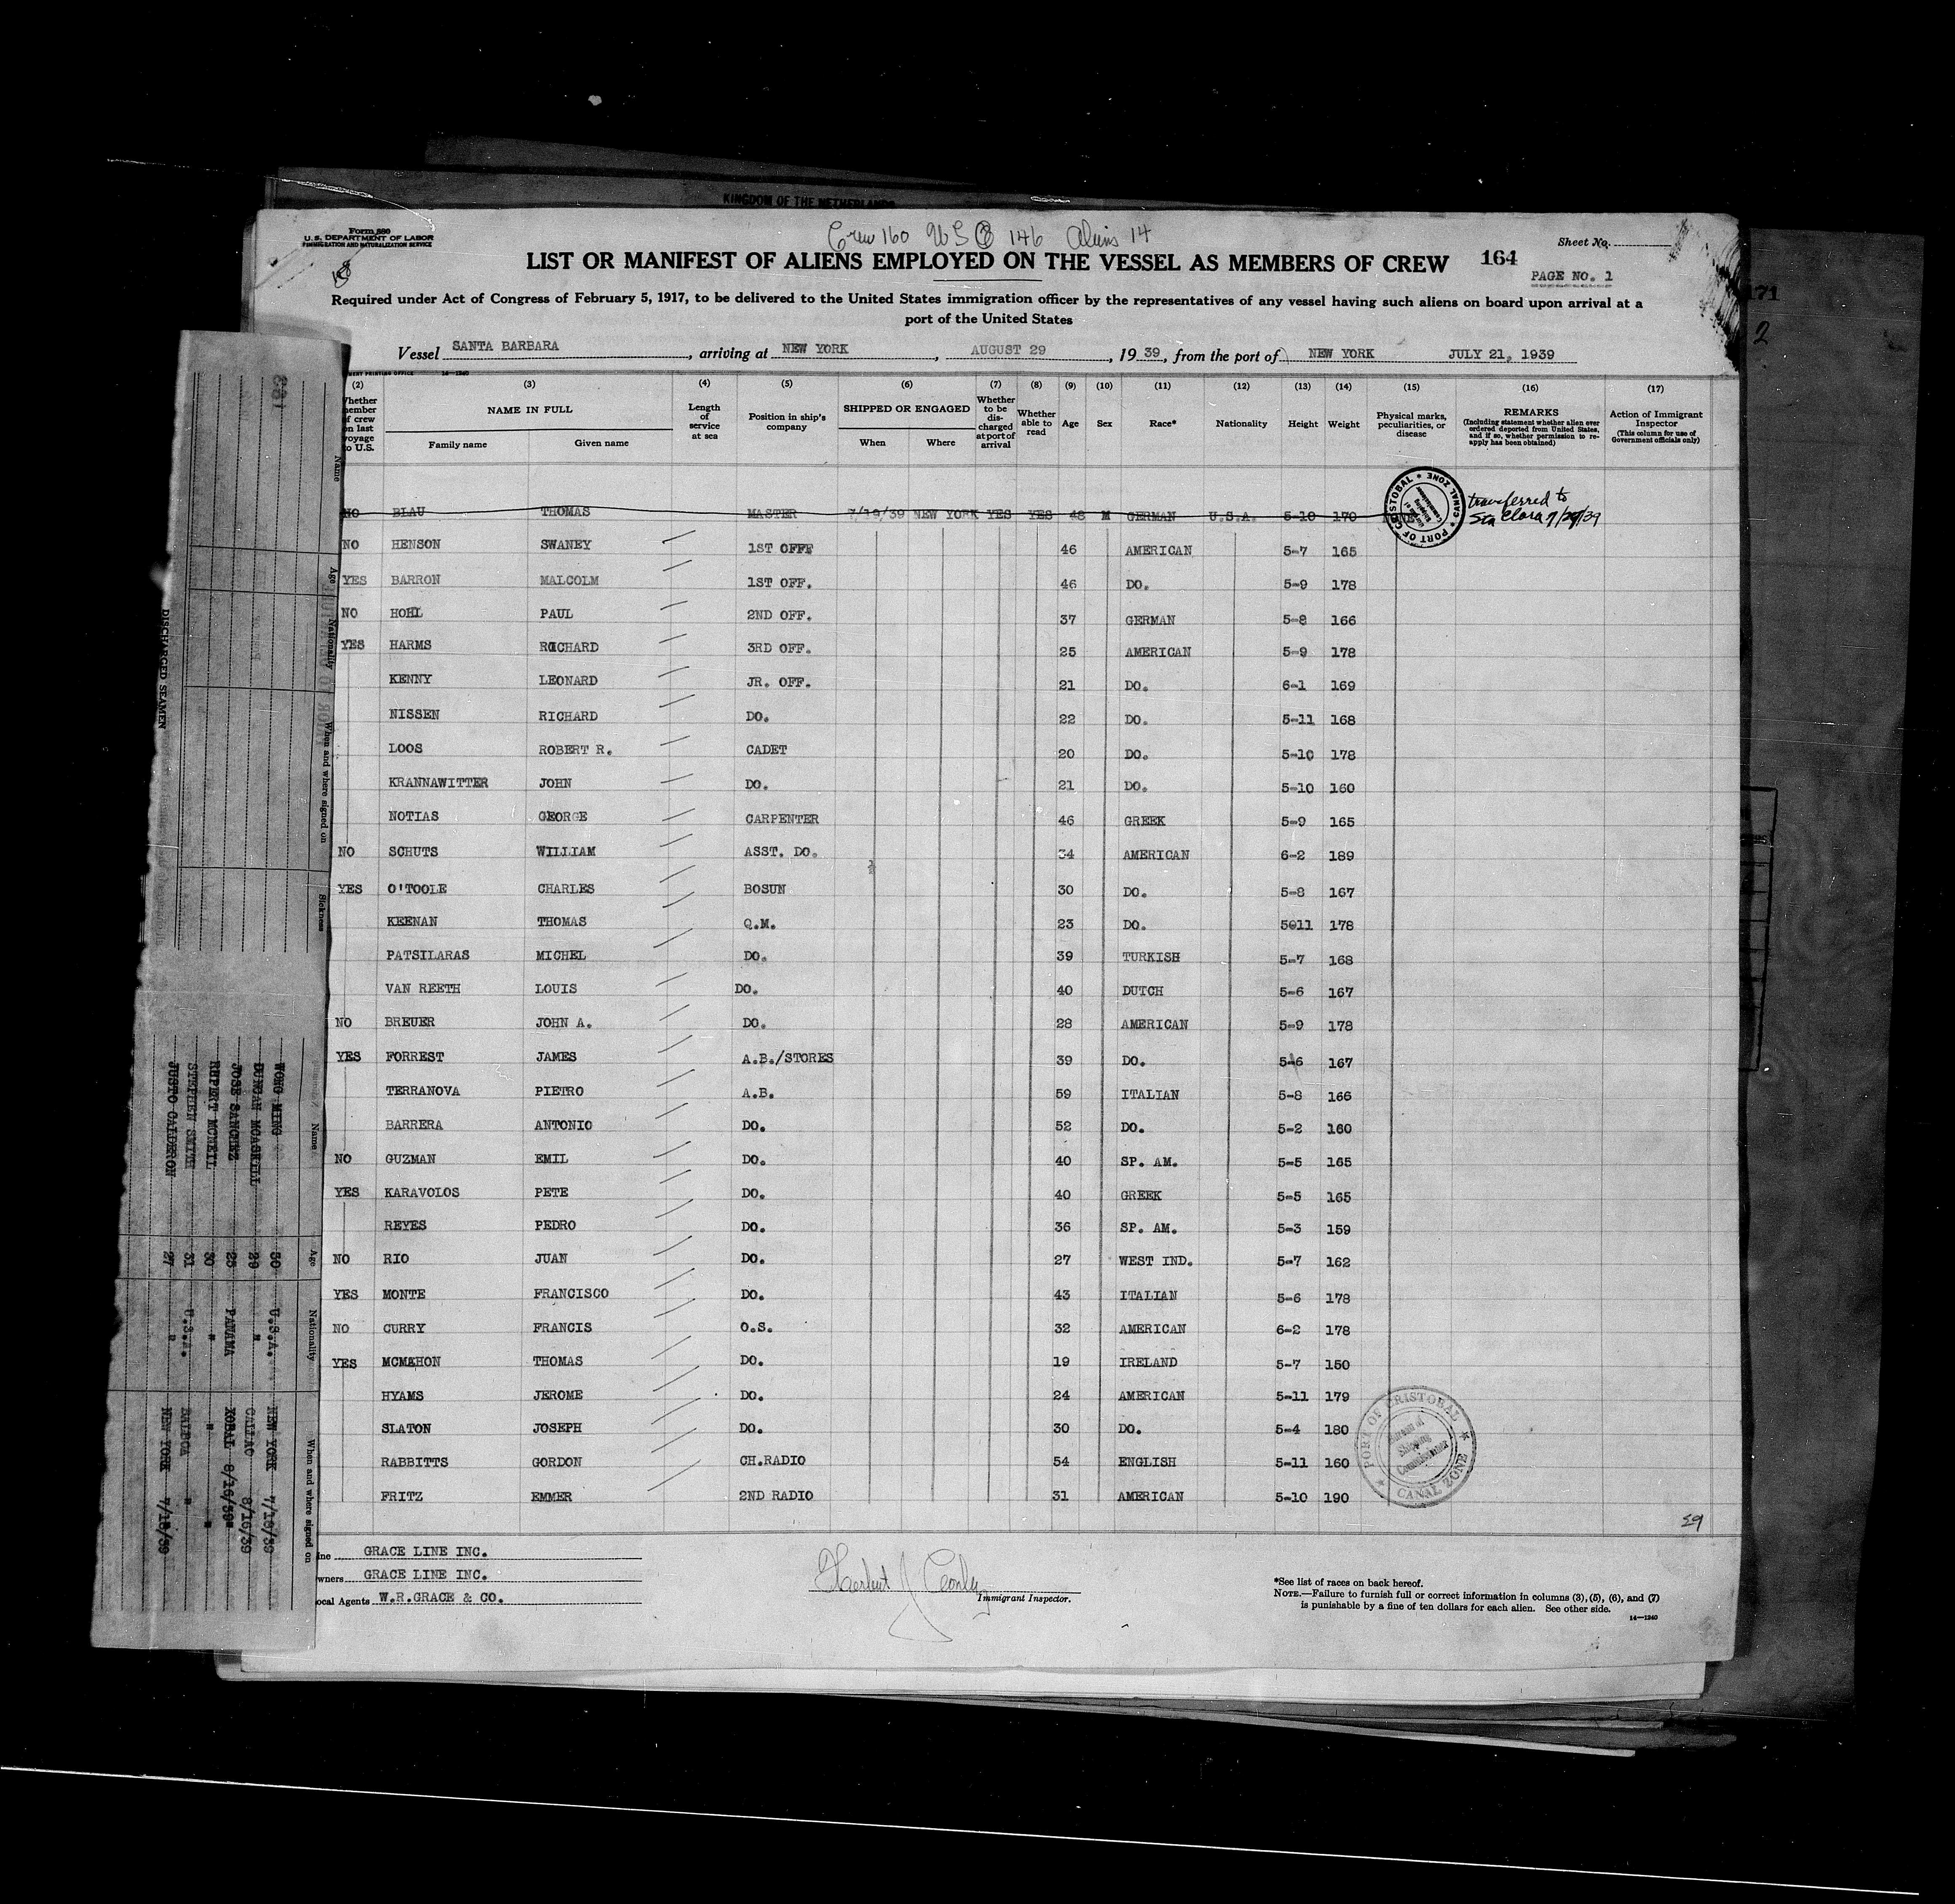 KINGDOM OF THE NETHERLANDS
Form 680
U.S. DEPARTMENT OF LABOR
IMMIGRATION AND NATURALIZATION SERVICE
Crew 160 146 Aliens 14
Sheet No.
LIST OR MANIFEST OF ALIENS EMPLOYED ON THE VESSEL AS MEMBERS OF CREW 164
PAGE NO. 1
171
2
Required under Act of Congress of February 5, 1917, to be delivered to the United States immigration officer by the representatives of any vessel having such aliens on board upon arrival at a
port of the United States
Vessel SANTA BARBARA, arriving at NEW YORK, AUGUST 29, 1939, from the port of NEW YORK JULY 21, 1939
(2) (3) (4) (5) (6) (7) (8) (9) (10) (11) (12) (13) (14) (15) (16) (17)
Whether member of crew on last voyage to U.S.
NAME IN FULL
Family name Given name
Length of service at sea
Position in ship's company
SHIPPED OR ENGAGED
When Where
Whether to be discharged at port of arrival
Whether able to read
Age Sex Race* Nationality Height Weight
Physical marks, peculiarities, or disease
REMARKS
(Including statement whether alien ever ordered deported from United States, and if so, whether permission to reapply has been obtained)
Action of Immigrant Inspector
(This column for use of Government officials only)
NO BLAU THOMAS MASTER 7/19/39 NEW YORK YES YES 48 M GERMAN U.S.A. 5-10 170 transferred to
Sta Clara
PORT OF CRISTOBAL * CANAL ZONE *
NO HENSON SWANEY 1ST OFFF 46 AMERICAN 5-7 165
YES BARRON MALCOLM 1ST OFF. 46 DO. 5-9 178
NO HOHL PAUL 2ND OFF. 37 GERMAN 5-8 166
YES HARMS RICHARD 3RD OFF. 25 AMERICAN 5-9 178
KENNY LEONARD JR. OFF. 21 DO. 6-1 169
NISSEN RICHARD DO. 22 DO. 5-11 168
LOOS ROBERT R. CADET 20 DO. 5-10 178
KRANNAWITTER JOHN DO. 21 DO. 5-10 160
NOTIAS GEORGE CARPENTER 46 GREEK 5-9 165
NO SCHUTS WILLIAM ASST. DO. 34 AMERICAN 6-2 189
YES O'TOOLE CHARLES BOSUN 30 DO. 5-8 167
KEENAN THOMAS Q.M. 23 DO. 5@11 178
PATSILARAS MICHEL DO. 39 TURKISH 5-7 168
VAN REETH LOUIS DO. 40 DUTCH 5-6 167
NO BREUER JOHN A. DO. 28 AMERICAN 5-9 178
YES FORREST JAMES A.B./STORES 39 DO. 5-6 167
TERRANOVA PIETRO A.B. 59 ITALIAN 5-8 166
BARRERA ANTONIO DO. 52 DO. 5-2 160
NO GUZMAN EMIL DO. 40 SP. AM. 5-5 165
YES KARAVOLOS PETE DO. 40 GREEK 5-5 165
REYES PEDRO DO. 36 SP. AM. 5-3 159
NO RIO JUAN DO. 27 WEST IND. 5-7 162
YES MONTE FRANCISCO DO. 43 ITALIAN 5-6 178
NO CURRY FRANCIS O.S. 32 AMERICAN 6-2 178
YES MCMAHON THOMAS DO. 19 IRELAND 5-7 150
HYAMS JEROME DO. 24 AMERICAN 5-11 179
SLATON JOSEPH DO. 30 DO. 5-4 180
RABBITTS GORDON CH.RADIO 54 ENGLISH 5-11 160
FRITZ EMMER 2ND RADIO 31 AMERICAN 5-10 190
PORT OF CRISTOBAL * CANAL ZONE *
Bureau of Shipping Commissioner
29
GRACE LINE INC.
Owners GRACE LINE INC.
Local Agents W.R.GRACE & CO.
Immigrant Inspector.
*See list of races on back hereof.
NOTE.—Failure to furnish full or correct information in columns (3), (5), (6), and (7)
is punishable by a fine of ten dollars for each alien. See other side.
14—1240
DISCHARGED SEAMEN
Name Age Nationality When and where signed on Sickness
Name Age Nationality When and where signed on
WONG MING 50 U.S.A. NEW YORK 7/18/39
DUNCAN MCASKILL 29 " CALLAO 8/16/39
JOSE SANCHEZ 25 PANAMA XOBAL 8/16/39"
RUPERT MCNEIL 30 " " "
STEPHEN SMITH 31 U.S.A. BALBOA "
JUSTO CALDERON 27 " NEW YORK 7/18/39